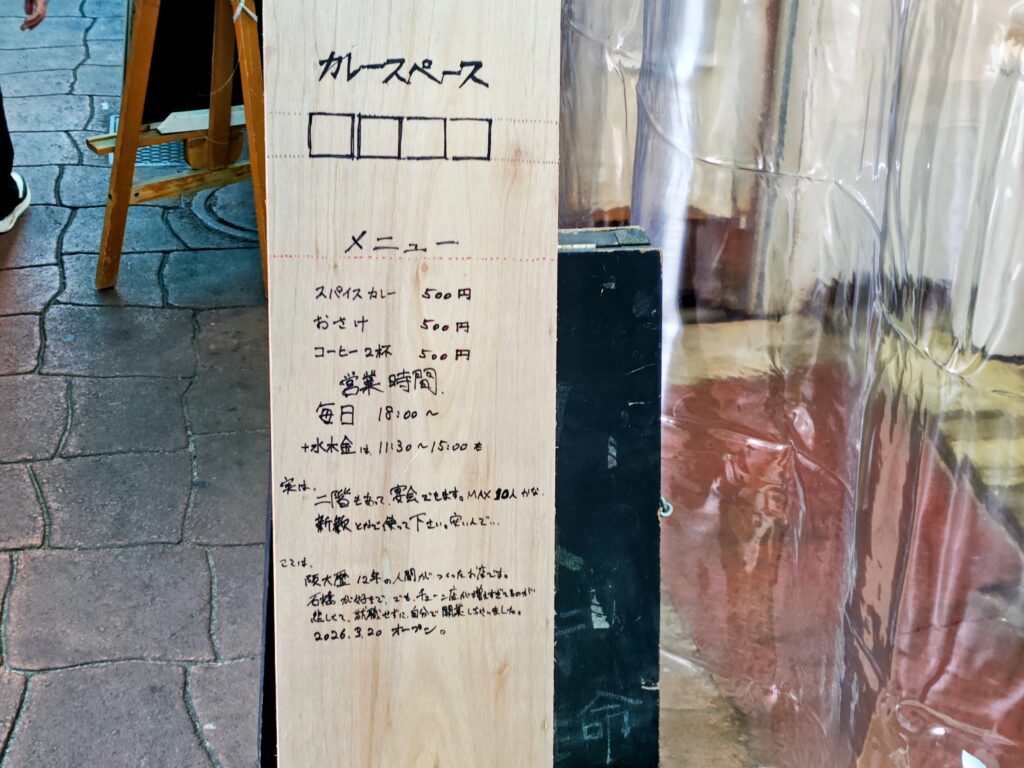 カレースペース
□□□□
メニュー
スパイスカレー 500円
おさけ 500円
コーヒー2杯 500円
営業時間
毎日 18:00～
+水木金は11:30～15:00も
実は、
二階もあって、宴会できます。MAX 10人かな
新歓とかで使って下さい。安いんで…
ここは、
阪大歴12年の人間がつくったお店です。
石橋が好きで、でも、チェーン店が増えすぎてるのが
悲しくて、就職せずに、自分で開業しちゃいました。
2026.3.20 オープン。
命